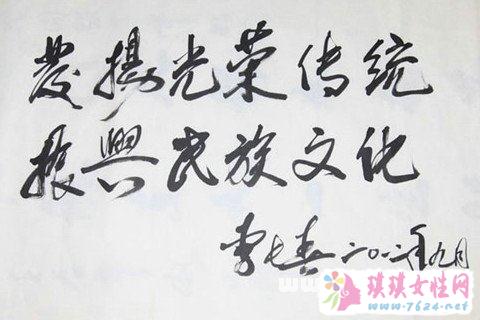 發揚光荣传统
振興民族文化
李長春 二〇一二年九月
琪琪女性网
www.7624.net